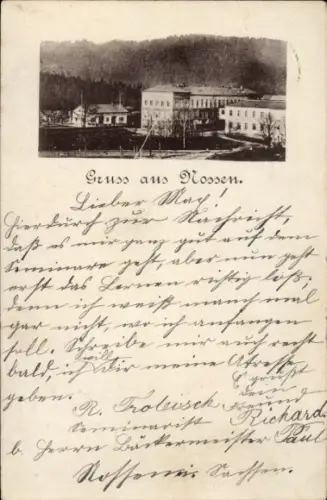 Gruss aus Nossen.
Lieber Max!
Hierdurch zur Nachricht,
daß es mir ganz gut auf dem
Seminare geht, aber nun geht
erst das Lernen richtig los,
denn ich weiß manchmal
gar nicht, wo ich anfangen
soll. Schreibe mir auch recht
bald, ich will Dir meine Adresse
geben.
Es grüßt
Dein
Freund
Richard
R.
Seminarist
b. Herrn Bäckermeister Paul
Nossen i. Sachsen.